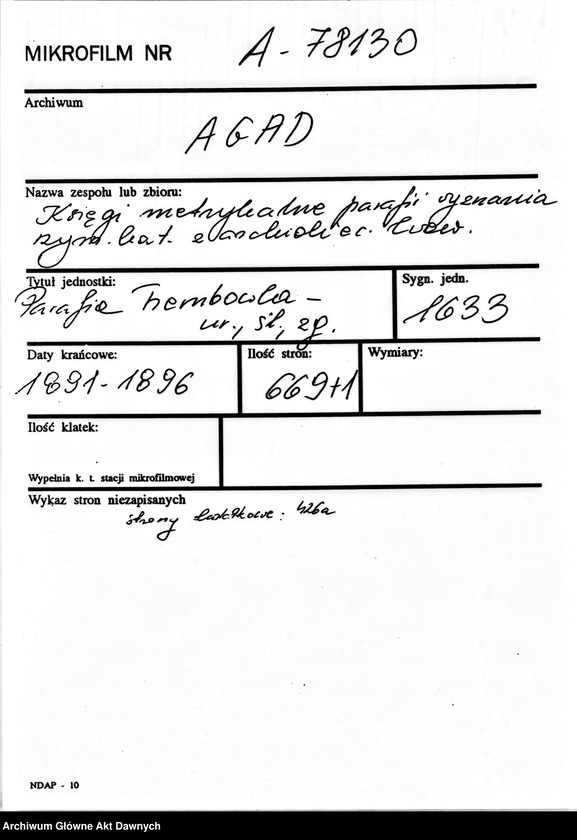 MIKROFILM NR A-78130
Archiwum
AGAD
Nazwa zespołu lub zbioru:
Księgi metrykalne parafii wyznania
rzym. kat. z archidiec. lwow.
Tytuł jednostki:
Parafia Trembowla -
ur., śl., zg.
Sygn. jedn.
1633
Daty krańcowe:
1891-1896
Ilość stron:
669+1
Wymiary:
Ilość klatek:
Wypełnia k. t. stacji mikrofilmowej
Wykaz stron niezapisanych
strony dodatkowe: 426a
NDAP - 10
Archiwum Główne Akt Dawnych